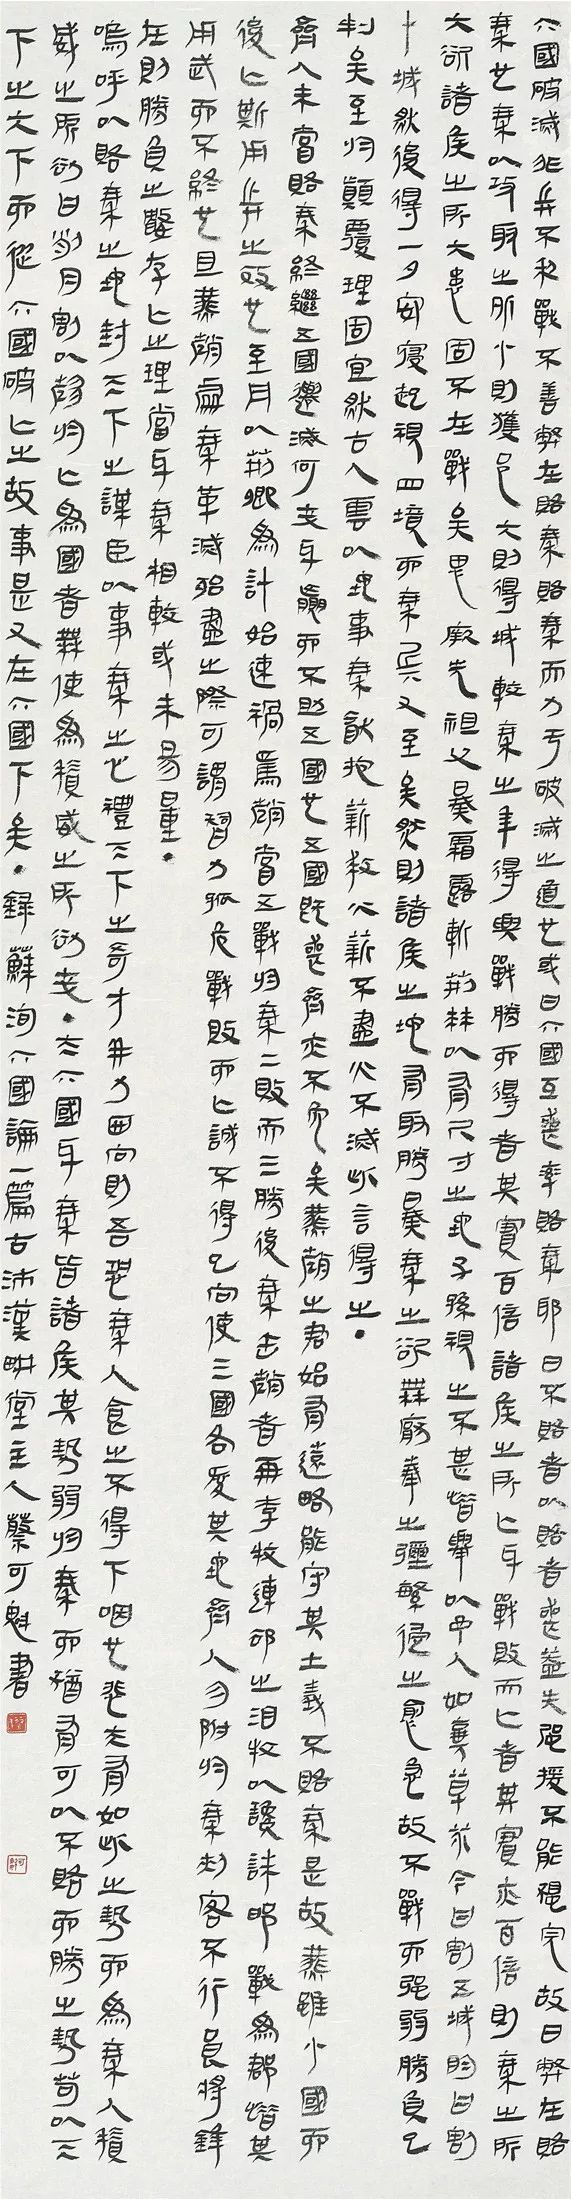 六國破滅非兵不利戰不善弊在賂秦賂秦而力亏破滅之道也或曰六國互喪率賂秦耶曰不賂者以賂者喪蓋失強援不能獨完故曰弊在賂
秦也秦以攻取之外小則獲邑大則得城較秦之所得與戰勝而得者其實百倍諸侯之所亡与戰敗而亡者其實亦百倍則秦之所
大欲諸侯之所大患固不在戰矣思厥先祖父暴霜露斬荊棘以有尺寸之地子孫視之不甚惜舉以予人如棄草芥今日割五城明日割
十城然後得一夕安寢起視四境而秦兵又至矣然則諸侯之地有限暴秦之欲無厭奉之彌繁侵之愈急故不戰而強弱勝負已
判矣至於顛覆理固宜然古人雲以地事秦猶抱薪救火薪不盡火不滅此言得之。
齊人未嘗賂秦終繼五國遷滅何哉与嬴而不助五國也五國既喪齊亦不免矣燕趙之君始有遠略能守其土義不賂秦是故燕雖小國而
後亡斯用兵之效也至丹以荊卿為計始速禍焉趙嘗五戰於秦二敗而三勝後秦击趙者再李牧連卻之洎牧以讒誅邯戰為郡惜其
用武而不終也且燕趙處秦革滅殆盡之際可謂智力孤危戰敗而亡誠不得已向使三國各愛其地齊人勿附於秦刺客不行良將猶
在則勝負之數存亡之理當与秦相較或未易量。
嗚呼以賂秦之地封天下之謀臣以事秦之心禮天下之奇才并力西向則吾恐秦人食之不得下咽也悲夫有如此之勢而為秦人積
威之所劫日削月割以趨於亡為國者無使為積威之所劫哉。夫六國与秦皆諸侯其勢弱於秦而猶有可以不賂而勝之勢苟以天
下之大下而從六國破亡之故事是又在六國下矣。錄蘇洵六國論一篇古沛漢畊堂主人蔡可魁書